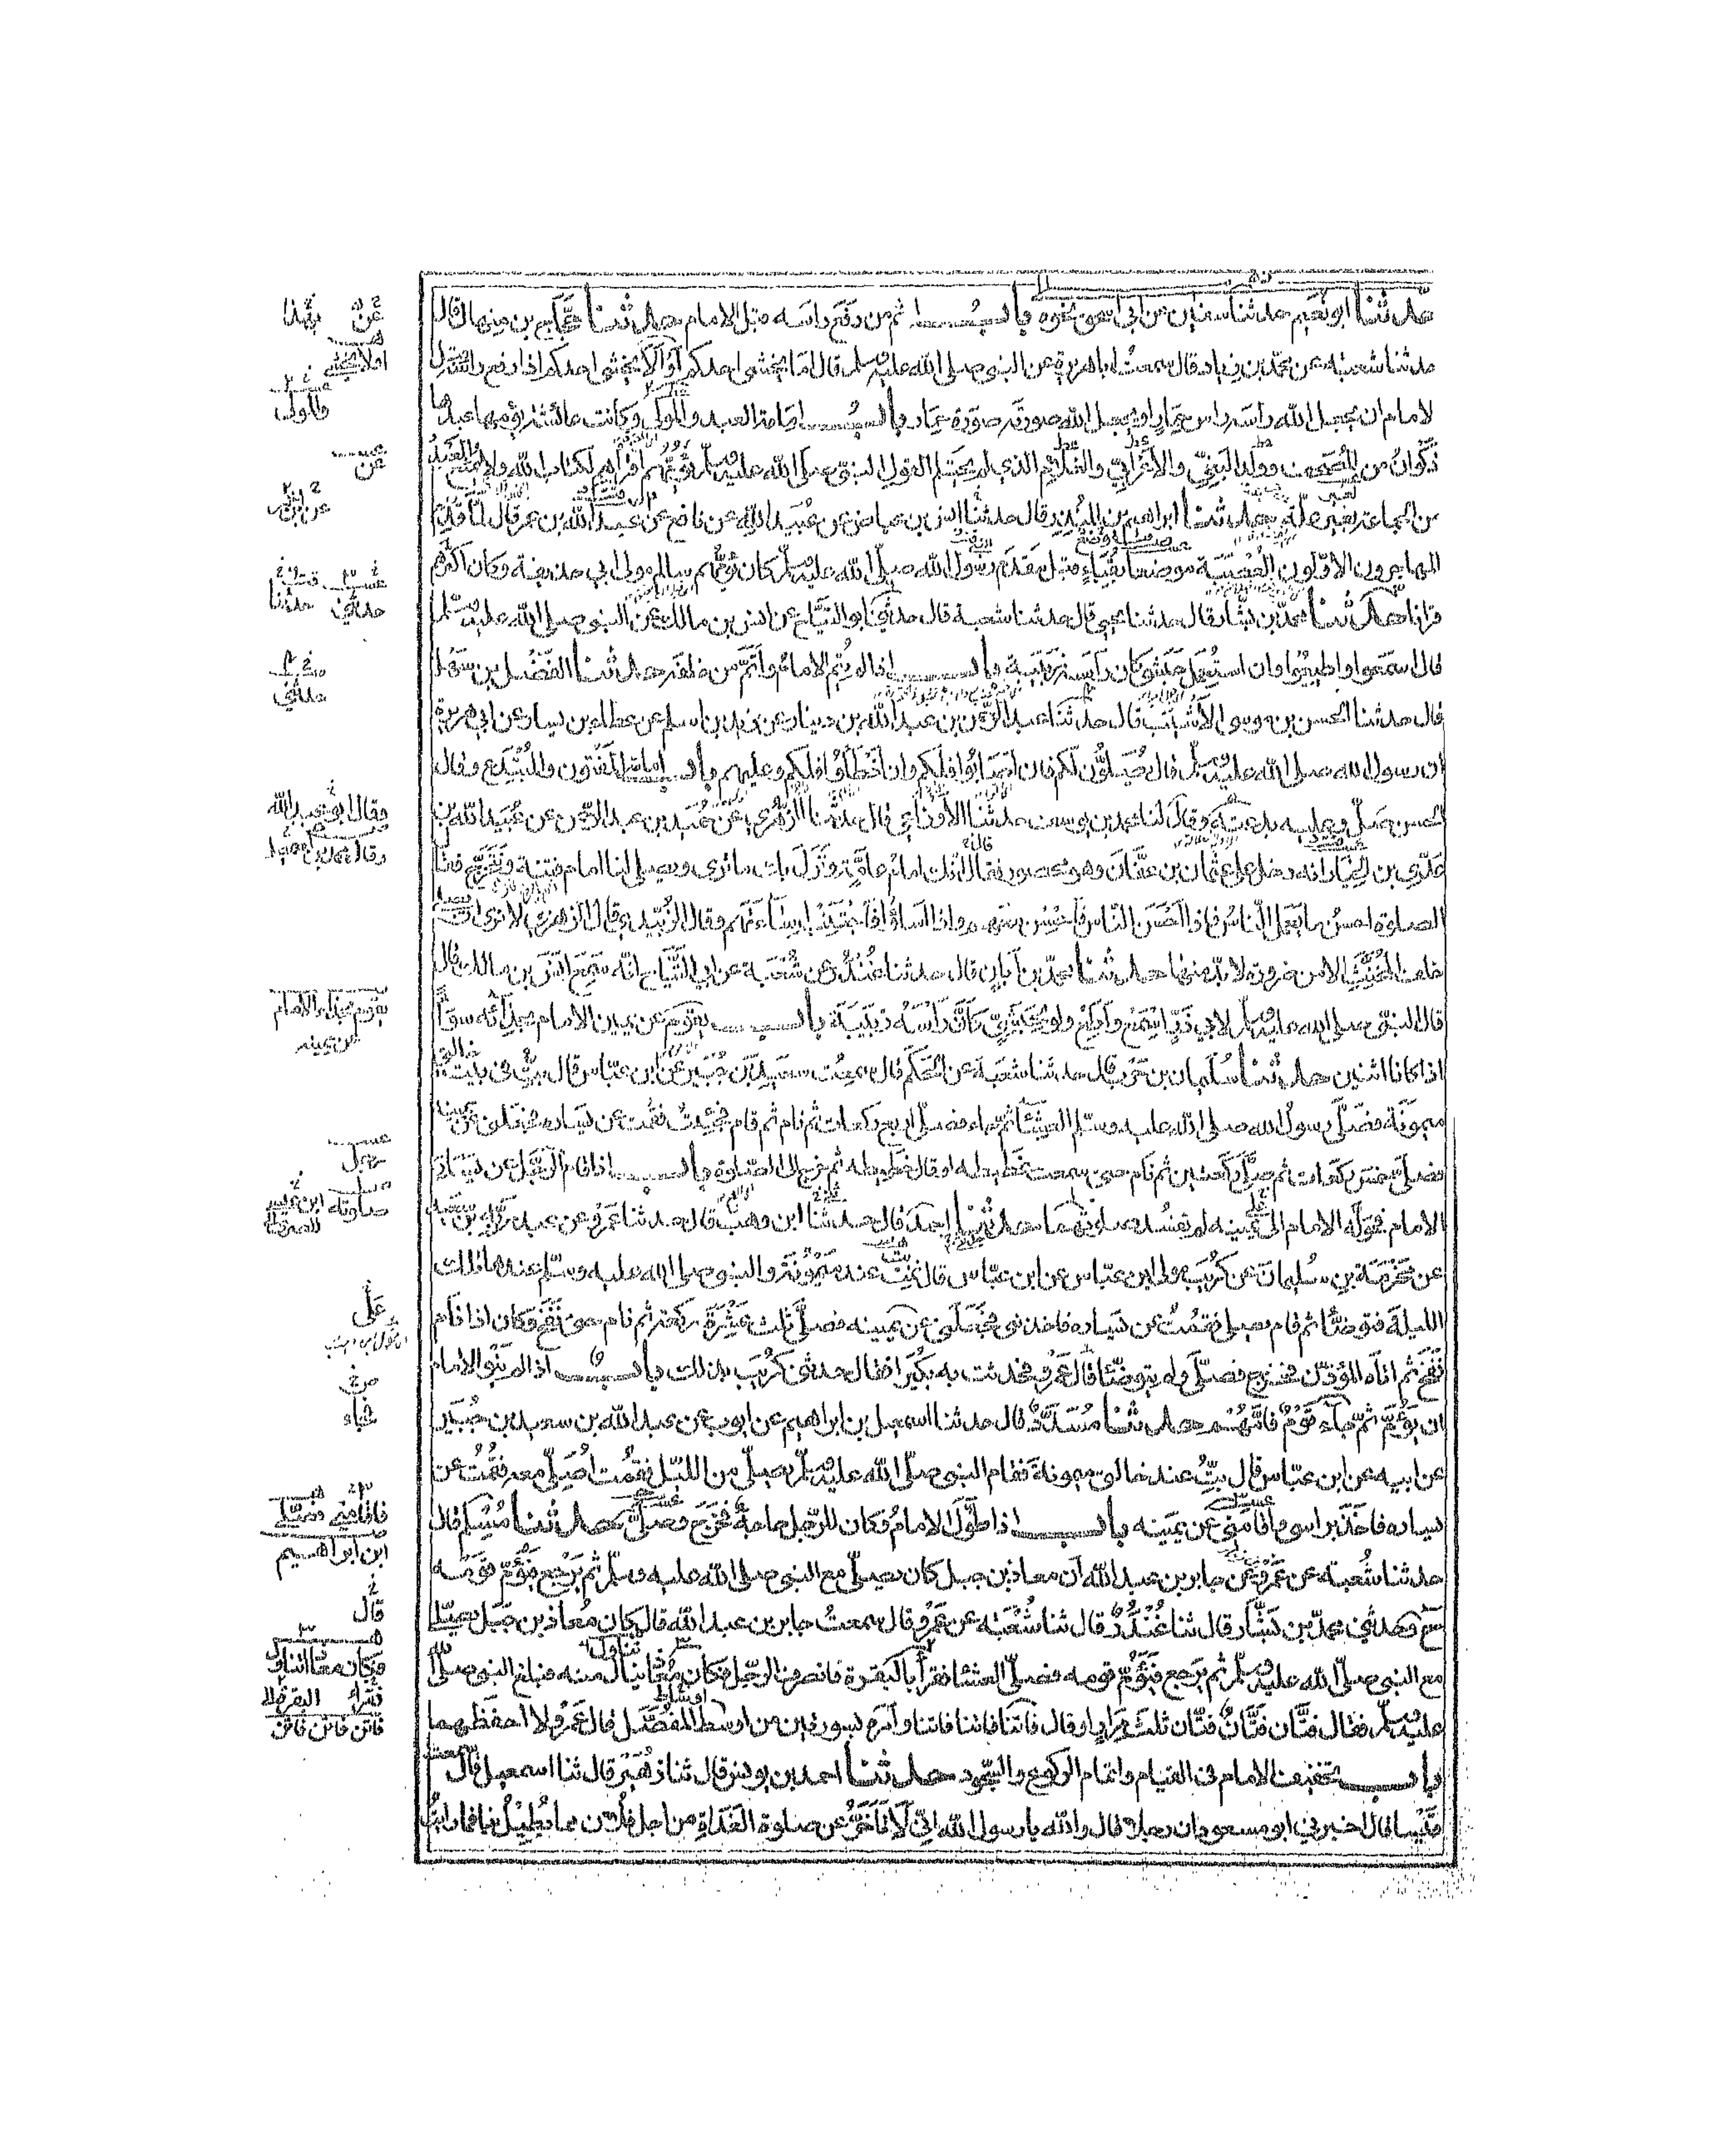 حدثنا ابو نعيم حدثنا سفين عن ابي اسحق نحوه باب اثم من رفع راسه قبل الامام حدثنا حجّاج بن منهال قال
حدثنا شعبة عن محمد بن زياد قال سمعت ابا هريرة عن النبي صلى الله عليه وسلم قال اما يخشى احدكم اَوْ اَلَا يخشى احدكم اذا رفع راسه قبل
الامام ان يجعل الله راسه راس حمار او يجعل الله صورته صورة حمار باب امامة العبد والمولى وكانت عائشة يؤمها عبدها
ذكوان من المصحف وولد البغيّ والاعرابيّ والغلام الذي لم يحتلم لقول النبي صلى الله عليه وسلم يؤمّهم اقراهم لكتاب الله ولا يمنع العبد
من الجماعة بغير علة حدثنا ابراهيم بن المنذر قال حدثنا انس بن عياض عن عبيد الله عن نافع عن عبد الله بن عمر قال لمّا قدم
المهاجرون الاوّلون العُصْبَة موضعا بقباء قبل مقدم رسول الله صلى الله عليه وسلم كان يؤمّهم سالم مولى ابي حذيفة وكان اكثرهم
قرانا حدثنا محمد بن بشار قال حدثنا يحيى قال حدثنا شعبة قال حدثني ابو التيّاح عن انس بن مالك عن النبي صلى الله عليه وسلم
قال اسمعوا واطيعوا وان استعمل حبشي كان راسه زبيبة باب اذا لم يُتم الامام واَتَمَّ من خلفه حدثنا الفضل بن سهل
قال حدثنا الحسن بن موسى الاشيب قال حدثنا عبد الرحمن بن عبد الله بن دينار عن زيد بن اسلم عن عطاء بن يسار عن ابي هريرة
ان رسول الله صلى الله عليه وسلم قال يُصَلُّون لكم فان اصابوا فلكم وان اخطأوا فلكم وعليهم باب امامة المفتون والمبتدع وقال
الحسن صلّ وعليه بدعته وقال لنا محمد بن يوسف حدثنا الاوزاعي قال حدثنا الزهري عن حميد بن عبد الرحمن عن عبيد الله بن
عدي بن الخيار انه دخل على عثمان بن عفّان وهو محصور فقال انك امام عامّة ونزل بك ما ترى ويصلي لنا امام فتنة ونتحرّج فقال
الصلوة احسن ما يعمل الناس فاذا احسن الناس فاحسن معهم واذا اساؤا فاجتنب اساءتهم وقال الزبيدي قال الزهري لا نرى ان يصلى
خلف المخنّث الا من ضرورة لا بد منها حدثنا محمد بن ابان قال حدثنا غُنْدُر عن شعبة عن ابي التيّاح انه سمع انس بن مالك قال
قال النبي صلى الله عليه وسلم لابي ذرّ اسمع واطع ولو لحبشيّ كان راسه زبيبة باب يقوم عن يمين الامام بحذائه سواءً
اذا كانا اثنين حدثنا سليمان بن حرب قال حدثنا شعبة عن الحكم قال سمعت سعيد بن جبير عن ابن عباس قال بتُّ في بيت خالتي
ميمونة فصلّى رسول الله صلى الله عليه وسلم العشاء ثم جاء فصلى اربع ركعات ثم نام ثم قام فجئت فقمت عن يساره فجعلني عن يمينه
فصلّى خمس ركعات ثم صلّى ركعتين ثم نام حتى سمعت غطيطه او قال خطيطه ثم خرج الى الصلوة باب اذا قام الرجل عن يسار
الامام فحوّله الامام الى يمينه لم تفسد صلوتهما حدثنا احمد قال حدثنا ابن وهب قال حدثنا عمرو عن عبد ربّه بن سعيد
عن مخرمة بن سليمان عن كريب مولى ابن عباس عن ابن عباس قال نمت عند ميمونة والنبي صلى الله عليه وسلم عندها تلك
الليلة فتوضّأ ثم قام يصلي فقمت عن يساره فاخذني فجعلني عن يمينه فصلّى ثلث عشرة ركعة ثم نام حتى نفخ وكان اذا نام
نفخ ثم اتاه المؤذّن فخرج فصلّى ولم يتوضّا قال عمرو فحدثت به بكيرا فقال حدثني كريب بذلك باب اذا لم ينو الامام
ان يؤمّ ثم جاء قوم فامّهم حدثنا مسدّد قال حدثنا اسمعيل بن ابراهيم عن ايوب عن عبد الله بن سعيد بن جبير
عن ابيه عن ابن عباس قال بتُّ عند خالتي ميمونة فقام النبي صلى الله عليه وسلم يصلّي من الليل فقمت اُصلّي معه فقمت عن
يساره فاخذ براسي واقامني عن يمينه باب اذا طوّل الامام وكان للرجل حاجة فخرج وصلّى حدثنا مسلم قال
حدثنا شعبة عن عمرو عن جابر بن عبد الله ان معاذ بن جبل كان يصلّي مع النبي صلى الله عليه وسلم ثم يرجع فيؤمّ قومه
ح وحدثني محمد بن بشّار قال ثنا غُنْدُر قال ثنا شعبة عن عمرو قال سمعت جابر بن عبد الله قال كان معاذ بن جبل يصلّي
مع النبي صلى الله عليه وسلم ثم يرجع فيؤمّ قومه فصلّى العشاء فقرأ بالبقرة فانصرف الرجل فكان معاذ ينال منه فبلغ النبي صلى الله
عليه وسلم فقال فتّان فتّان فتّان ثلث مرار او قال فاتنا فاتنا فاتنا وامره بسورتين من اوسط المفصّل قال عمرو لا احفظهما
باب تخفيف الامام في القيام واتمام الركوع والسجود حدثنا احمد بن يونس قال ثنا زهير قال ثنا اسمعيل قال سمعت
قيسا قال اخبرني ابو مسعود ان رجلا قال والله يا رسول الله اني لاتأخّر عن صلوة الغداة من اجل فلان مما يطيل بنا فما رايت
عن
والمولى
عن
حدثني حدثنا
حدثني
وقال ابو عبد الله
وقال محمد بن اسمعيل
يقوم بحذاء الامام
عن يمينه
رجل
صلوته
جاء
فاقامني فصلّى
ابن ابراهيم
قال
فكان معاذ تناول
فقرأ البقرة
فاتن فاتن فاتن